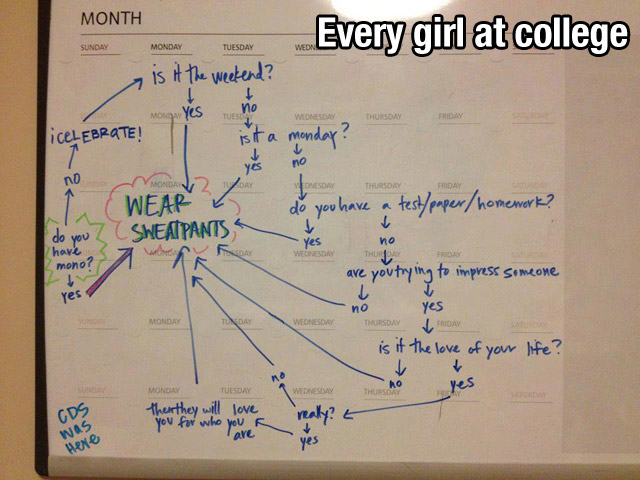 Every girl at college
MONTH
SUNDAY MONDAY TUESDAY
is it the weekend?
yes no
¡CELEBRATE!
MONDAY TUESDAY WEDNESDAY THURSDAY FRIDAY SATURDAY
is it a monday?
yes no
no
SUNDAY MONDAY TUESDAY WEDNESDAY THURSDAY FRIDAY SATURDAY
WEAR
SWEATPANTS
do you have a test/paper/homework?
yes no
do you
have
mono?
yes
MONDAY TUESDAY WEDNESDAY THURSDAY FRIDAY SATURDAY
are you trying to impress someone
no yes
SUNDAY MONDAY TUESDAY WEDNESDAY THURSDAY FRIDAY SATURDAY
is it the love of your life?
no yes
no
SUNDAY MONDAY TUESDAY WEDNESDAY THURSDAY SATURDAY
really?
yes
then they will love
you for who you
are
CDS
was
Here